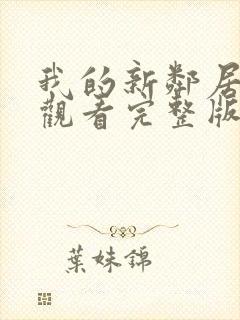 我的新鄰居
觀看完整版
葉妹錦